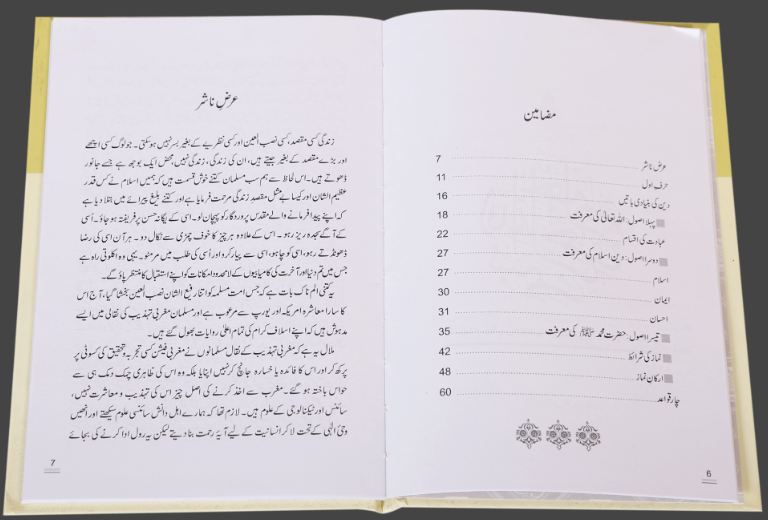 مضامین
عرض ناشر 7
حرف اول 11
دین کی بنیادی باتیں 16
پہلا اصول: اللہ تعالیٰ کی معرفت 18
عبادت کی اقسام 22
دوسرا اصول: دین اسلام کی معرفت 27
اسلام 27
ایمان 30
احسان 31
تیسرا اصول: حضرت محمد ﷺ کی معرفت 35
نماز کی شرائط 42
ارکان نماز 48
چار قواعد 60
6
عرض ناشر
زندگی کسی مقصد، کسی نصب العین اور کسی نظریے کے بغیر بسر نہیں ہو سکتی۔ جو لوگ کسی اچھے
اور بڑے مقصد کے بغیر جیتے ہیں، ان کی زندگی، زندگی نہیں، محض ایک بوجھ ہے جسے جانور
ڈھوتے ہیں۔ اس لحاظ سے ہم سب مسلمان کتنے خوش قسمت ہیں کہ ہمیں اسلام نے کس قدر
عظیم الشان اور کیسا بے مثل مقصدِ زندگی مرحمت فرمایا ہے اور کتنے بلیغ پیرائے میں بتلا دیا ہے
کہ اپنے پیدا فرمانے والے مقدس پروردگار کو پہچان لو۔ اسی کے یگانہ حسن پر فریفتہ ہو جاؤ۔ اُسی
کے آگے سجدہ ریز رہو۔ اس کے علاوہ ہر چیز کا خوف چمڑی سے نکال دو۔ ہر آن اسی کی رضا
ڈھونڈتے رہو، اسی کو چاہو، اسی سے پیار کرو اور اُسی کی طلب میں مر مٹو۔ یہی وہ اکلوتی راہ ہے
جس میں تم دنیا اور آخرت کی کامیابیوں کے لامحدود امکانات کو اپنے استقبال کا منتظر پاؤ گے۔
یہ کتنی الم ناک بات ہے کہ جس امت مسلمہ کو اتنا رفیع الشان نصب العین بخشا گیا، آج اس
کا سارا معاشرہ امریکہ اور یورپ سے مرعوب ہے اور مسلمان مغربی تہذیب کی نقالی میں ایسے
مدہوش ہیں کہ اپنے اسلاف کرام کی تمام اعلیٰ روایات بھول گئے ہیں۔
ملال یہ ہے کہ مغربی تہذیب کے نقال مسلمانوں نے مغربی فیشن کسی تجربہ و تحقیق کی کسوٹی پر
پرکھ کر اور اس کا فائدہ یا خسارہ جانچ کر نہیں اپنایا بلکہ وہ اس کی ظاہری چمک دمک ہی سے
حواس باختہ ہو گئے۔ مغرب سے اخذ کرنے کی اصل چیز اس کی تہذیب و معاشرت نہیں،
سائنس اور ٹیکنالوجی کے علوم ہیں۔ لازم تھا کہ ہمارے اہل دانش سائنسی علوم سیکھتے اور انھیں
وحیٔ الٰہی کے تحت لا کر انسانیت کے لیے آیۂ رحمت بنا دیتے لیکن یہ رول ادا کرنے کی بجائے
7